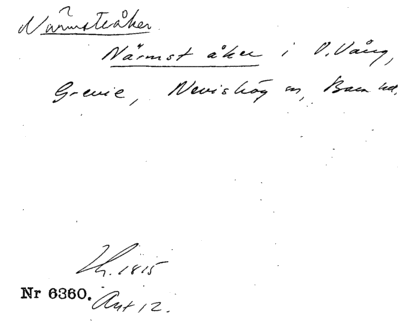 Närmsteåker
Närmst åker i V. Vång,
Grevie, Nevishög sn, Bara hd.
Lh. 1815
Nr 6360. Akt 12.